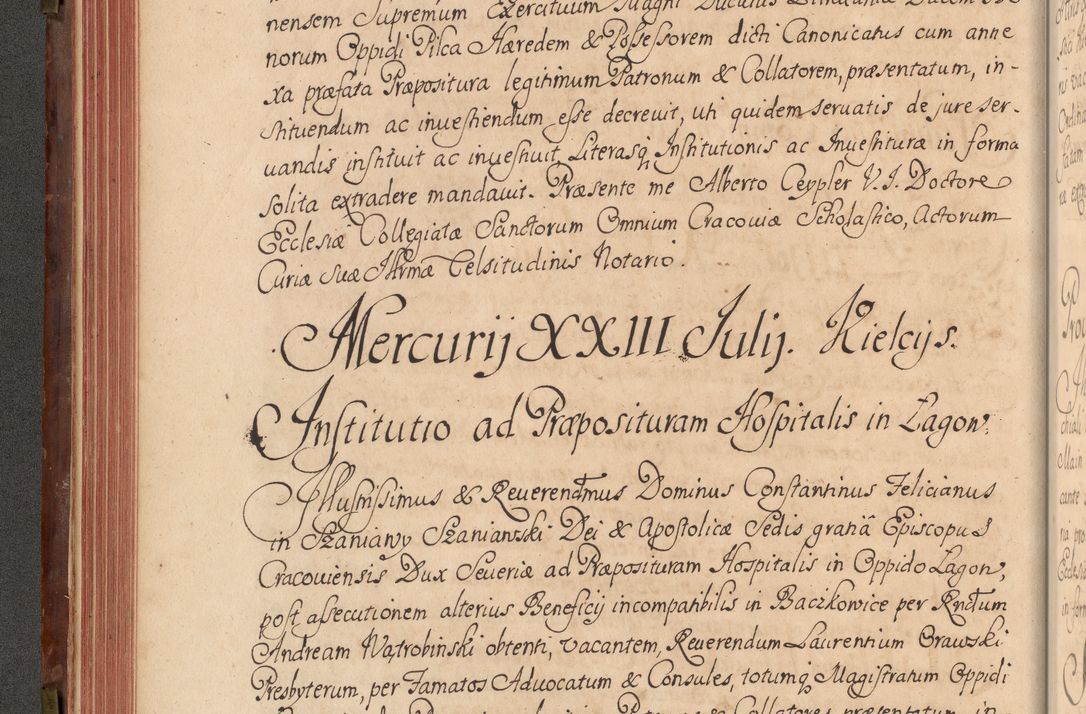 nensem Supremum Exercituum Magni Ducatus Lithuaniæ Ducem
norum Oppidi Pilca Hæredem & Possessorem dicti Canonicatus cum anne
xa præfata Præpositura legitimum Patronum & Collatorem, præsentatum, in-
stituendum ac inuestiendum esse decreuit, uti quidem seruatis de jure ser-
uandis instituit ac inuestiuit, Literasq Institutionis ac Inuestituræ in forma
solita extradere mandauit. Præsente me Alberto Ceypler V. I. Doctore
Ecclesiæ Collegiatæ Sanctorum Omnium Cracouiæ Scholastico, Actorum
Curiæ Suæ Illrmæ Celsitudinis Notario.
Mercurij XXIII Julij. Kielcijs.
Institutio ad Præposituram Hospitalis in Lagow.
Illustrissimus & Reuerendmus Dominus Constantinus Felicianus
in Szaniawy Szaniawski Dei & Apostolicæ Sedis gratiâ Episcopus
Cracouiensis Dux Seueriæ ad Præposituram Hospitalis in Oppido Lagow,
post assecutionem alterius Beneficij incompatibilis in Baczkowice per Rndum
Andream Wątrobiński obtenti, vacantem, Reuerendum Laurentium Orawski
Presbyterum, per Famatos Aduocatum & Consules, totumq Magistratum Oppidi
Collatores præsentatum, in